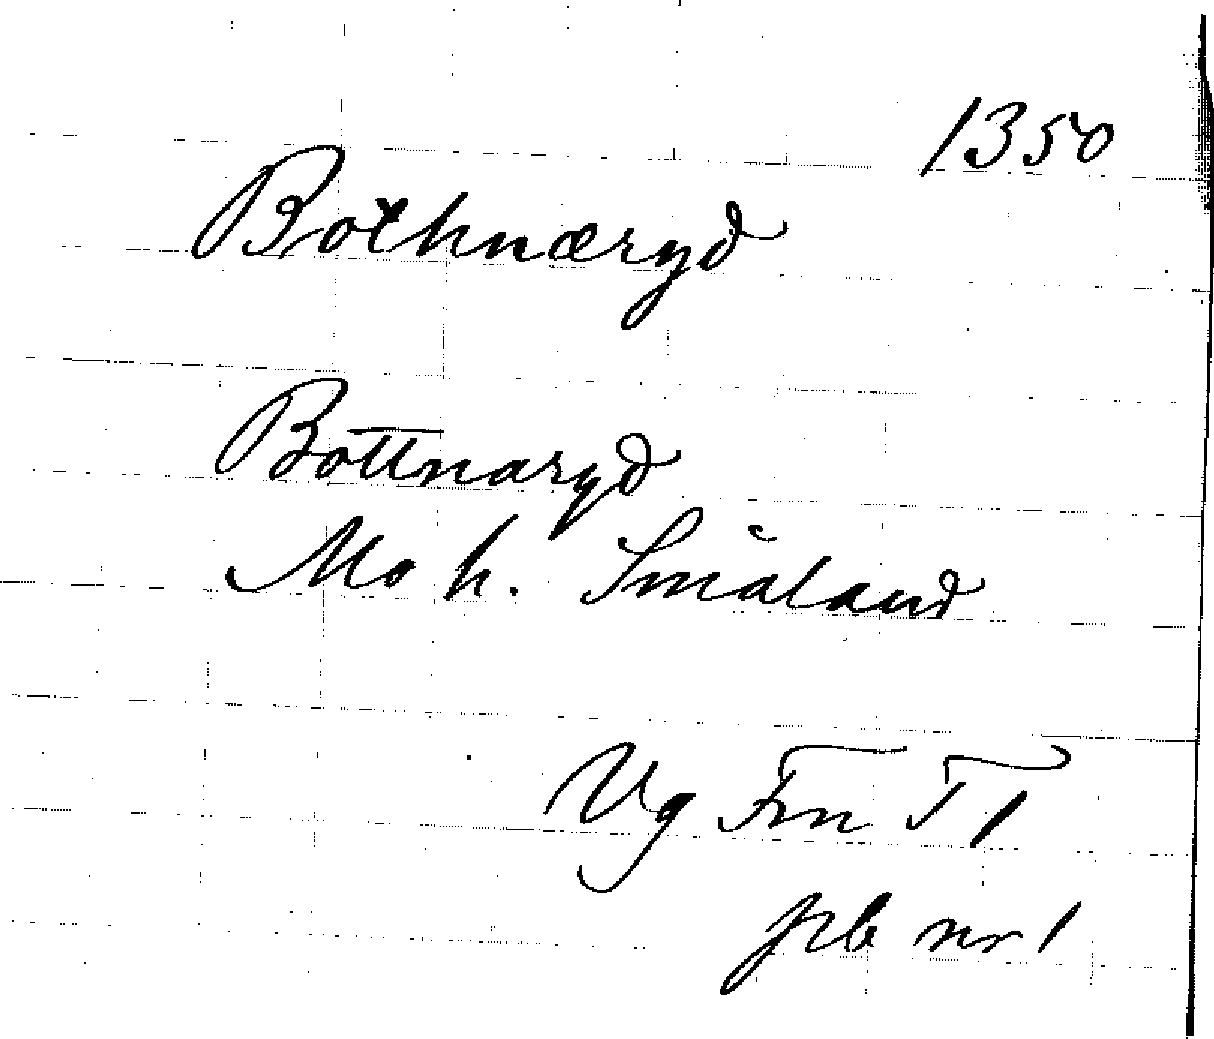 1350
Bothnæryd
Bottnaryd
Mo h. Småland
Vg Fnn T 1
prb nr 1